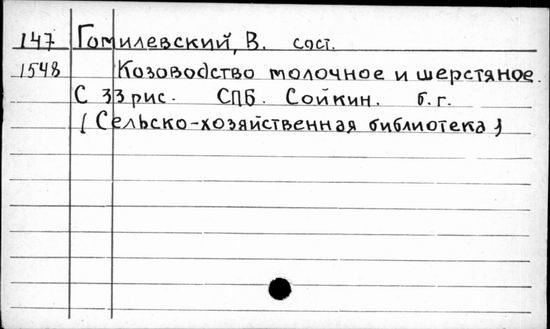 147 Гомилевский, В. сост.
1548 Козоводство молочное и шерстяное.
С 33 рис. СПБ. Сойкин. б.г.
(Сельско-хозяйственная библиотека)